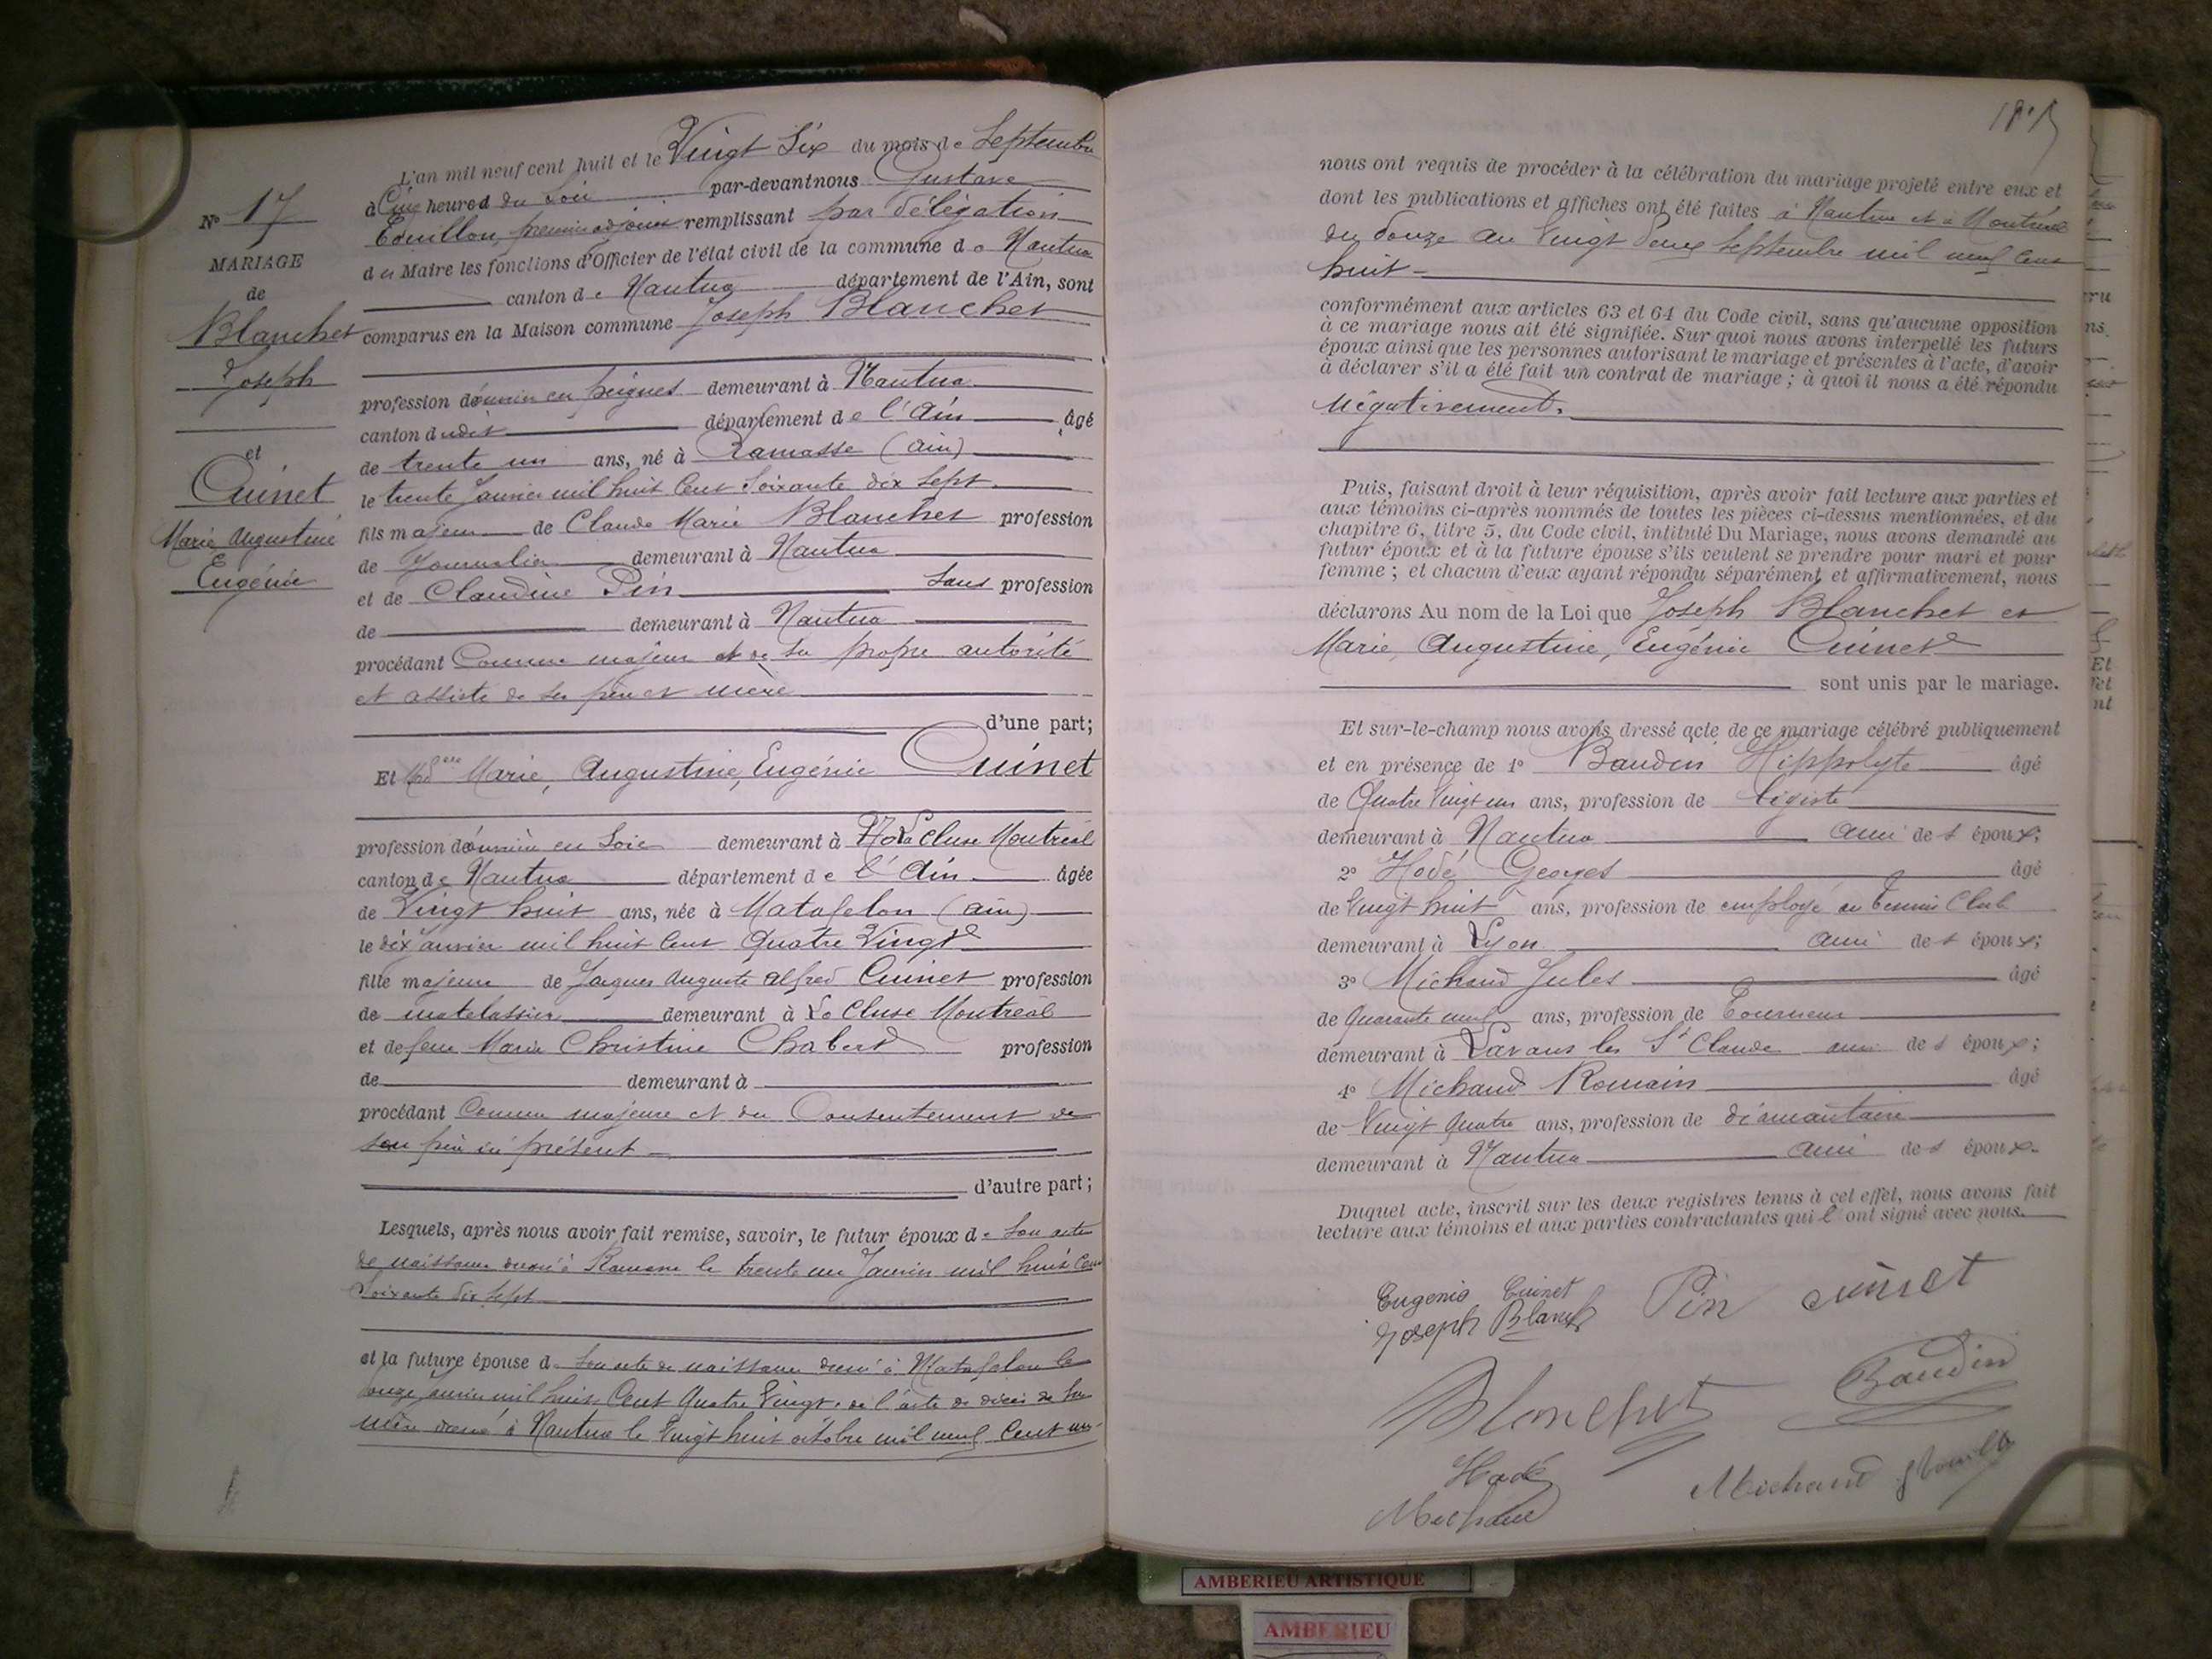 N° 17
MARIAGE
de
Blanchet
Joseph
et
Cuinet
Marie Augustine
Eugénie
L'an mil neuf cent huit et le Vingt Six du mois de Septembre
à Cinq heures du Soir par-devant nous Gustave
premier adjoint remplissant par délégation
du Maire les fonctions d'Officier de l'état civil de la commune de Nantua
canton de Nantua département de l'Ain, sont
comparus en la Maison commune Joseph Blanchet
profession d'ouvrier en peignes demeurant à Nantua
canton dudit département de l'Ain âgé
de trente un ans, né à Ramasse (Ain)
le trente Janvier mil huit Cent Soixante dix Sept
fils majeur de Claude Marie Blanchet profession
de Journalier demeurant à Nantua
et de Claudine Pin Sans profession
de demeurant à Nantua
procédant Comme majeur et de sa propre autorité
et assisté de ses père et mère
d'une part;
Et Md.elle Marie, Augustine, Eugénie Cuinet
profession d'ouvrière en Soie demeurant à La Cluse Montréal
canton de Nantua département de l'Ain âgée
de Vingt huit ans, née à Matafelon (Ain)
le dix Janvier mil huit Cent Quatre Vingt
fille majeure de Jacques Auguste Alfred Cuinet profession
de matelassier demeurant à La Cluse Montréal
et de feue Marie Christine Chabert profession
de demeurant à
procédant Comme majeure et du Consentement de
son père ici présent
d'autre part;
Lesquels, après nous avoir fait remise, savoir, le futur époux de Son acte
de naissance dressé à Ramasse le trente un Janvier mil huit Cent
Soixante dix Sept
et la future épouse de Son acte de naissance dressé à Matafelon le
onze Janvier mil huit Cent Quatre Vingt, de l'acte de décès de Sa
mère dressé à Nantua le Vingt huit octobre mil neuf Cent un
nous ont requis de procéder à la célébration du mariage projeté entre eux et
dont les publications et affiches ont été faites à Nantua et à Montréal
du douze au Vingt deux Septembre mil neuf Cent
huit
conformément aux articles 63 et 64 du Code civil, sans qu'aucune opposition
à ce mariage nous ait été signifiée. Sur quoi nous avons interpellé les futurs
époux ainsi que les personnes autorisant le mariage et présentes à l'acte, d'avoir
à déclarer s'il a été fait un contrat de mariage; à quoi il nous a été répondu
Négativement.
Puis, faisant droit à leur réquisition, après avoir fait lecture aux parties et
aux témoins ci-après nommés de toutes les pièces ci-dessus mentionnées, et du
chapitre 6, titre 5, du Code civil, intitulé Du Mariage, nous avons demandé au
futur époux et à la future épouse s'ils veulent se prendre pour mari et pour
femme; et chacun d'eux ayant répondu séparément et affirmativement, nous
déclarons Au nom de la Loi que Joseph Blanchet et
Marie, Augustine, Eugénie Cuinet
sont unis par le mariage.
Et sur-le-champ nous avons dressé acte de ce mariage célébré publiquement
et en présence de 1° Baudin Hippolyte âgé
de Quatre Vingt un ans, profession de légiste
demeurant à Nantua ami des époux;
2° Hodé Georges âgé
de Vingt huit ans, profession de employé au Tennis Club
demeurant à Lyon ami des époux;
3° Michaud Jules âgé
de Quarante neuf ans, profession de Tourneur
demeurant à Lavans les St Claude ami des époux;
4° Michaud Romain âgé
de Vingt Quatre ans, profession de diamantaire
demeurant à Nantua ami des époux.
Duquel acte, inscrit sur les deux registres tenus à cet effet, nous avons fait
lecture aux témoins et aux parties contractantes qui l'ont signé avec nous.
Eugenie Cuinet
Joseph Blanchet
Pin
Cuinet
Blanchet
Baudin
Hodé
Michaud
Michaud
AMBERIEU ARTISTIQUE
AMBERIEU